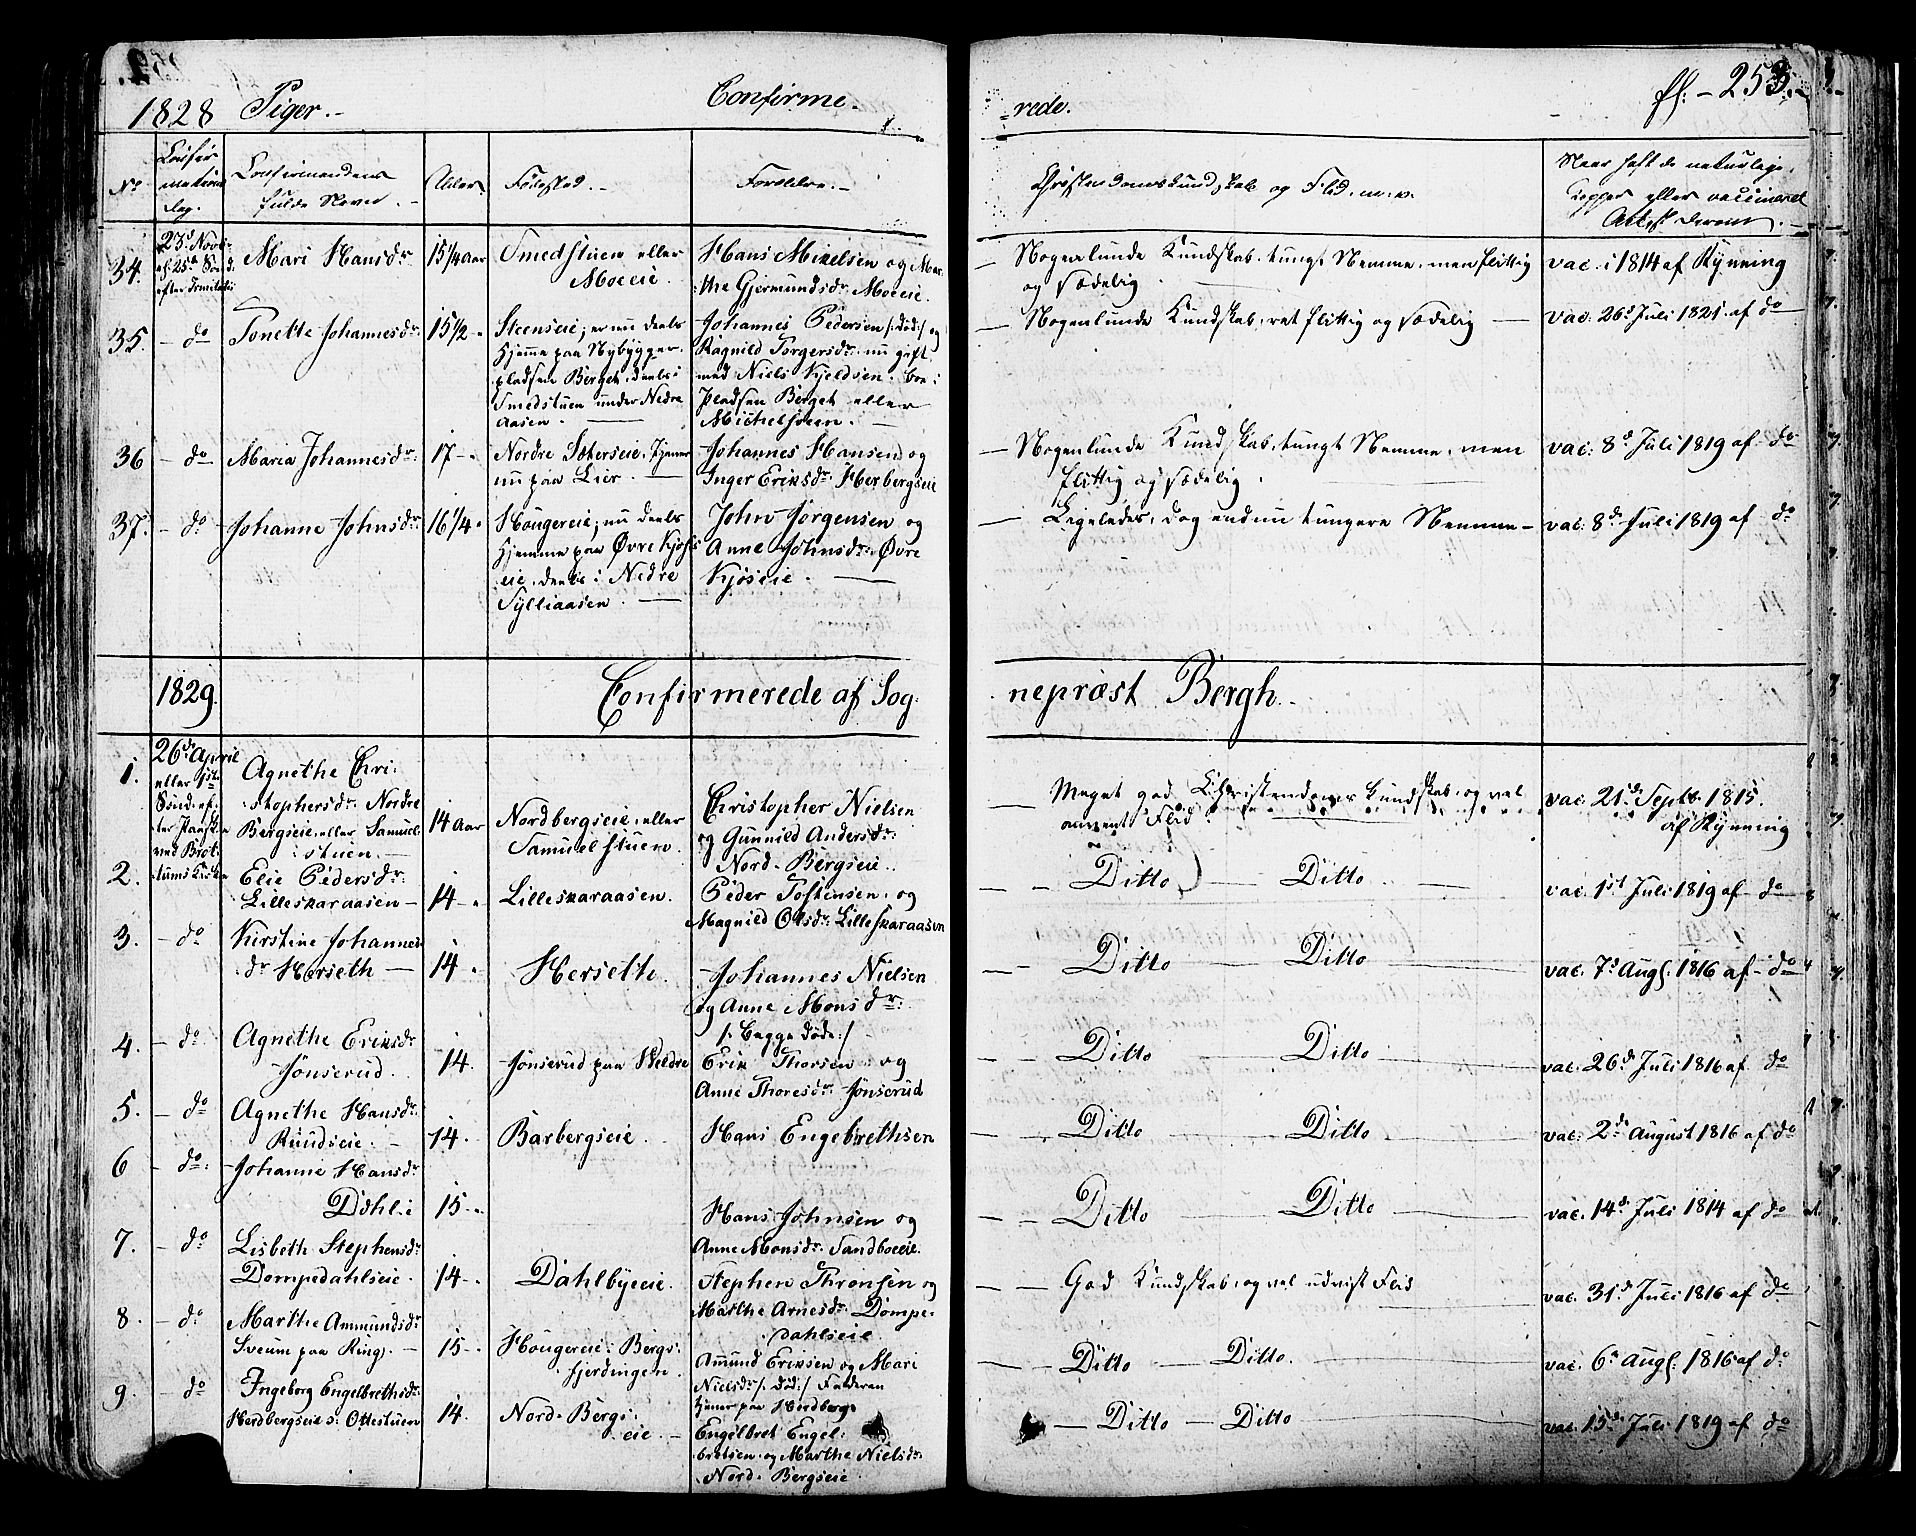 1828 Piger.- Confirme.
-rede. ff: - 253.-
No Confir
mations
dag.
Confirmandens
fulde Navn.-
Alder.
Fødested.-
Forældre.-
Christendomskundskab og Flid. m. v.
Naar havt de naturlige
Kopper eller vaccineret
Attest derom.-
34. 23d Novb:
ef: 25de Sønd:
efter Trinitatis
Mari Hansdr 15 1/4 Aar
Smedstuen eller
Moeeie.
Hans Mikelsen og Mar-
the Gjermundsdr: Moeeie.
- Nogenlunde Kundskab, tungt Nemme, men flittig
og sædelig.
vac. i 1814 af Rynning
35. - do Tonette Johannesdr 15 1/2 -
Steenseie; er nu deels
hjemme paa Nybygger-
pladsen Berget, deels i
Smedstuen under Nedre
Aasen.-
Johannes Pedersen /: død :/ og
Ragnild Torgersdr. nu gift
med Niels Kjeldsen. boe i
Pladsen Berget eller
Michelsveen.-
- Nogenlunde Kundskab, ret flittig og sædelig -
vac. 26d Juli 1821. af do
36 - do Maria Johannesdr. 17 -
Nordre Sæterseie, tjener
nu paa Lier.-
Johannes Hansen og
Inger Eriksdr. Herbergseie
- Nogenlunde Kundskab, tungt Nemme, men
flittig og sædelig.
vac: 8d Juli 1819 af do
37. - do Johanne Johnsdr. 16 1/4 -
Hougereie; nu deels
hjemme paa Øvre Kjøs
eie, deels i Nedre
Sylliaasen.-
John Jörgensen og
Anne Johnsdr. Øvre
Kjøseie.-
- Ligeledes, dog endnu tungere Nemme -
vac: 8de Juli 1819 af do
1829. Confirmerede af Sog-
nepræst Bergh.-
1. 26de April
eller 1ste
Sønd: ef-
ter Paaske
ved Brot-
tums Kirke
Agnethe Chri-
stophersdr. Nordre
Bergseie, eller Samuel-
stuen.-
14 Aar
Nordbergseie, eller
Samuelstuen.
Christopher Nielsen
og Gunnild Andersdr:
Nord-Bergseie.
Meget god Christendoms Kundskab, og vel
anvendt Flid.
vac. 21de Septb. 1815.
af Rynning
2. Elie Pedersdr.
Lilleskaraasen -
14 -
Lilleskaraasen.
Peder Tostensen, og
Magnild Olsdr. Lilleskaraasen
- - Ditto - Ditto -
vac. 1st Juli 1819 af - do
3. - do Kirstine Johannes-
dr Herseth -
14 -
Herseth.
Johannes Nielsen
og Anne Monsdr:
/: begge døde :/
- - Ditto - Ditto -
vac. 7d Augs. 1816 af - do
4. - do Agnethe Eriksdr
Jønserud.
14.
Jønserud paa Veldre
Erik Thorsen og
Anne Thoresdr. Jønserud
- - Ditto - Ditto
vac. 26de Juli 1816 af do
5. - do Agnethe Hansdr.
Ruudseie.-
14.
Barbergseie.
Hans Engebrethsen
- - Ditto - Ditto
vac. 2de August 1816 af do
6 - do: Johanne Hansdr
Døhli
15 -
Hans Johnsen og
Anne Monsdr. Sandboeeie.
- - Ditto - Ditto
vac. 14de Juli 1814 af do
7. - do Lisbeth Stephensdr
Dompedahlseie.
14 -
Dahlbyeeie.
Stephen Thronsen og
Marthe Arnesdr. Dompe-
dahlseie
- - God Kundskab, og vel udvist Flid
vac. 31de Juli 1816 af do
8. - do Marthe Ammundsdr
Sveum paa Ring.-
15 -
Hougereie i Bergs-
fjerdingen.
Amund Eriksen og Mari
Nielsdr /: død :/ Faderen
tjener paa Herdberg.
- - Ditto - Ditto.
vac. 6d Augs. 1816 af do
9. - do Ingeborg Engelbrethsdr:
Herdbergseie s: Ottestuen
14.
Nord-Bergs-
eie.-
Engelbret Engel-
bretsen og Marthe Nielsdr
Nord-Bergseie
- Ditto - Ditto
vac. 15de Juli 1819 af do